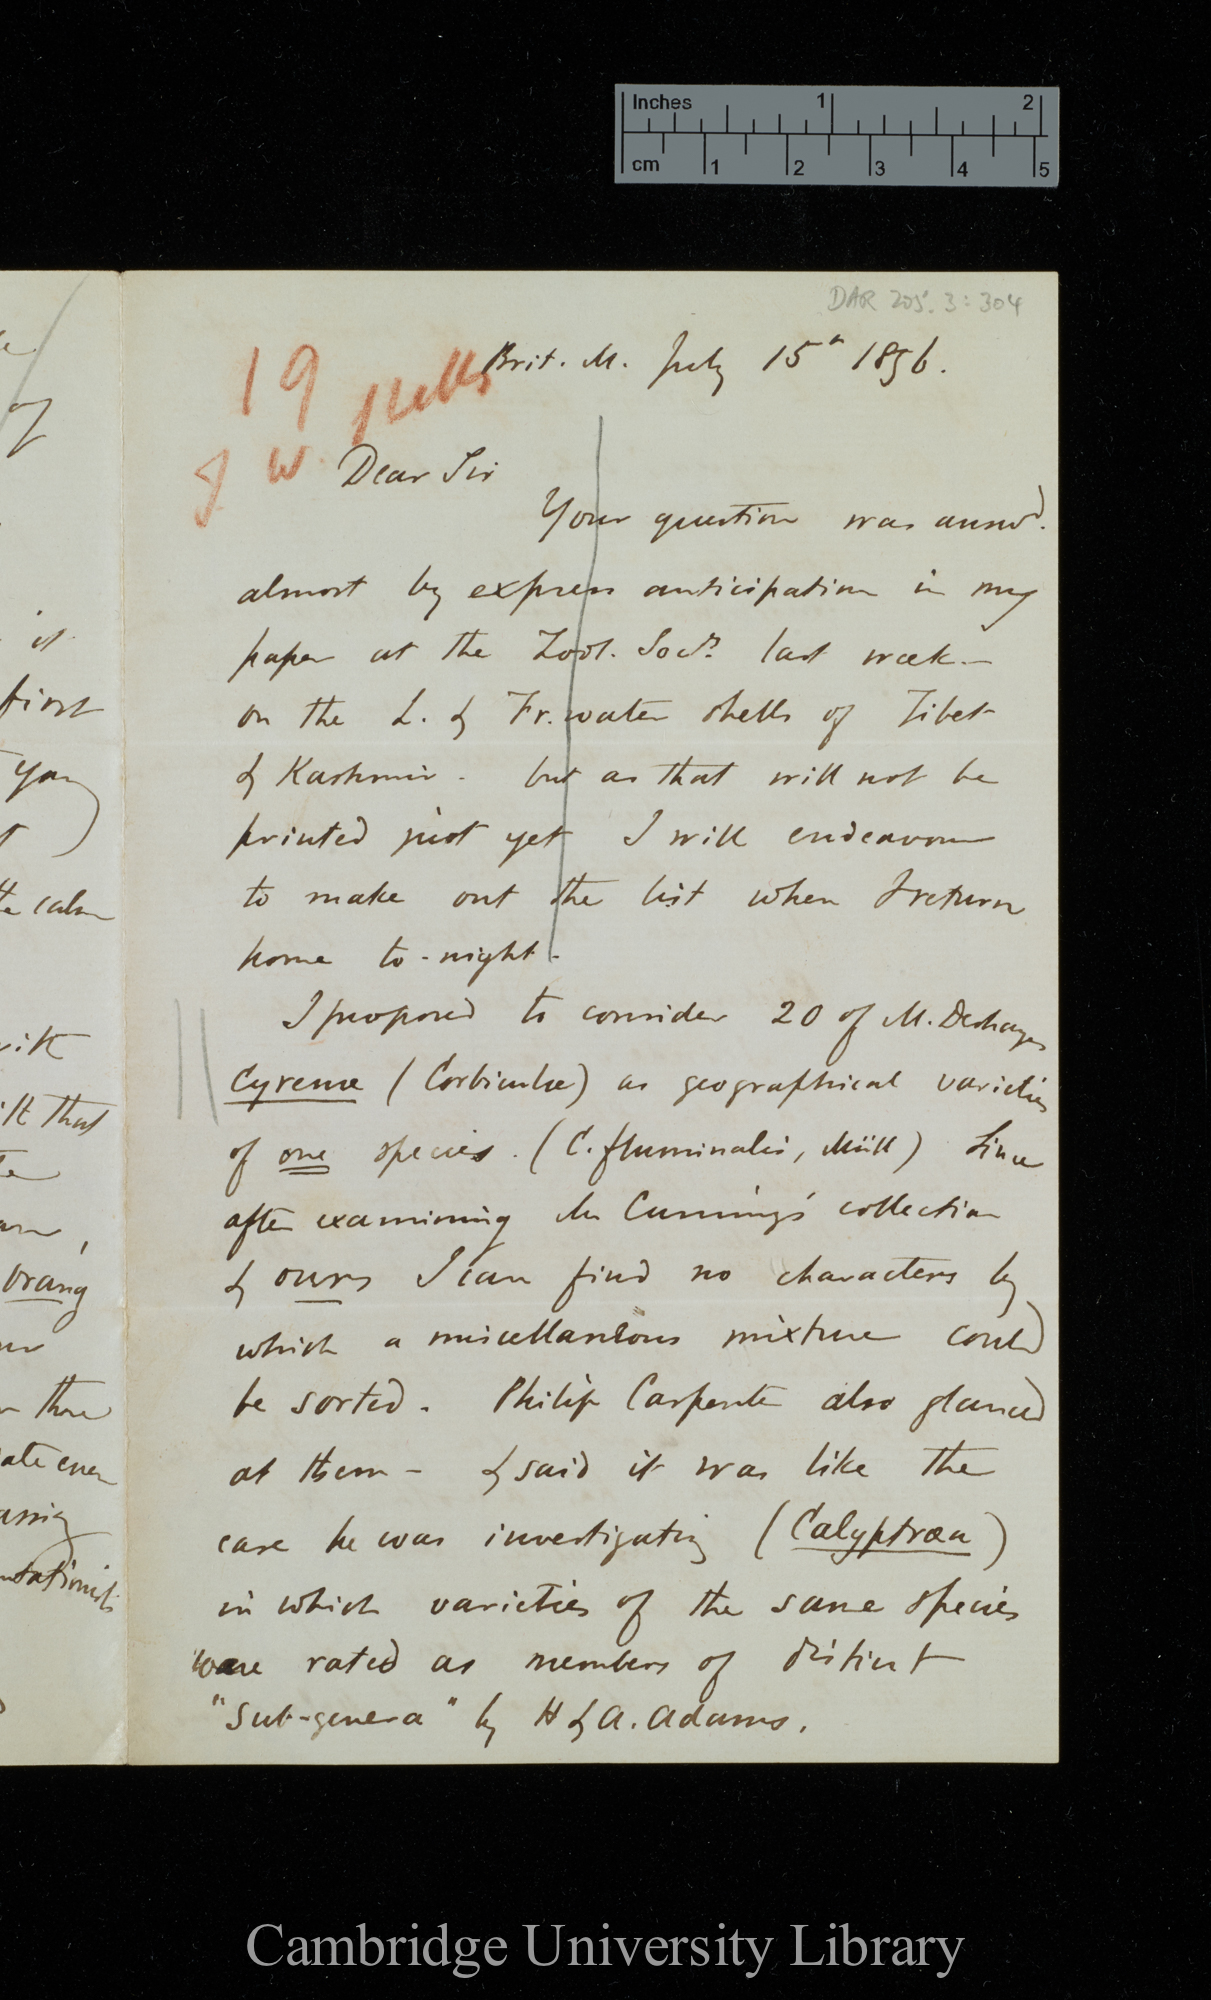 Inches 1 2
cm 1 2 3 4 5
DAR 205.3:304
19 shells
Brit. M. July 15th 1856.
Dear Sir
Your question was answd.
almost by express anticipation in my
paper at the Zool. Socy. last week—
on the L. & Fr. water shells of Tibet
& Kashmir. but as that will not be
printed just yet I will endeavour
to make out the list when I return
home to-night.
I proposed to consider 20 of M. Deshayes
Cyrenæ (Corbiculæ) as geographical varieties
of one species. (C. fluminalis, Müll) Since
after examining Mr Cuming's collection
& ours I can find no characters by
which a miscellaneous mixture could
be sorted. Philip Carpenter also glanced
at them— & said it was like the
case he was investigating (Calyptræa)
in which varieties of the same species
were rated as members of distinct
"sub-genera" by H & A. Adams.
of
it
first
Yang
the calm
with
that
Orang
them
Cambridge University Library